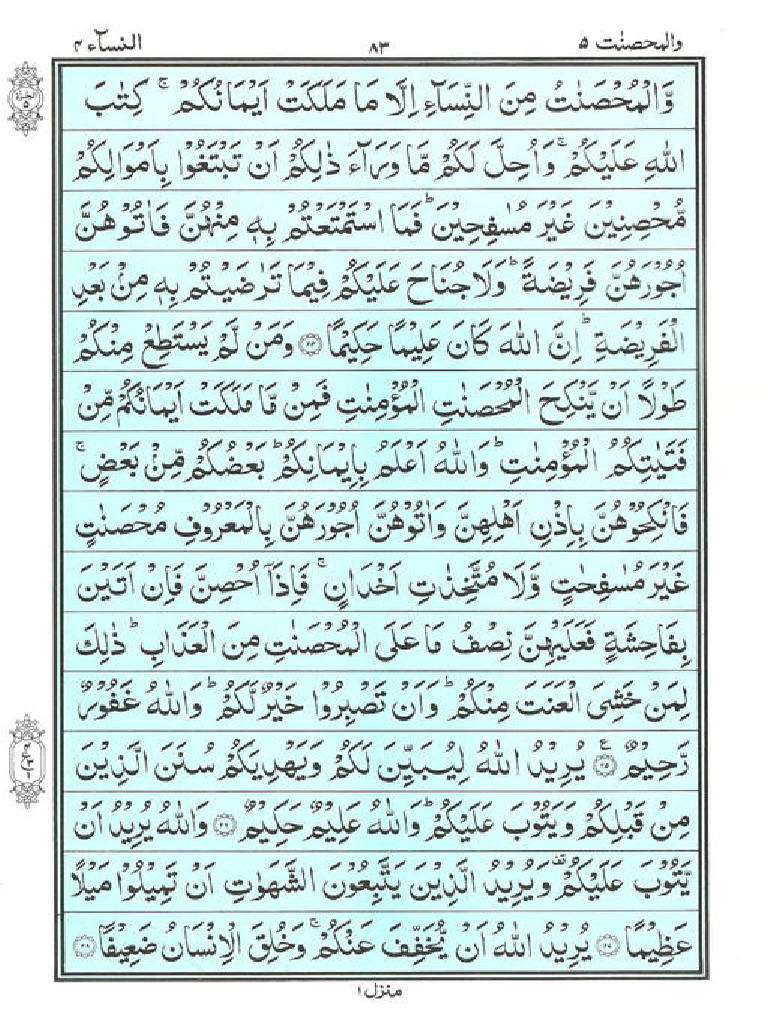 والمحصنٰت ۵ ۸۳ النسآء ۴
وَّالْمُحْصَنٰتُ مِنَ النِّسَآءِ اِلَّا مَا مَلَكَتْ اَيْمَانُكُمْ ۚ كِتٰبَ
الجزء ۵
اللّٰهِ عَلَيْكُمْ ۚ وَاُحِلَّ لَكُمْ مَّا وَرَآءَ ذٰلِكُمْ اَنْ تَبْتَغُوْا بِاَمْوَالِكُمْ
مُّحْصِنِيْنَ غَيْرَ مُسٰفِحِيْنَ ؕ فَمَا اسْتَمْتَعْتُمْ بِهٖ مِنْهُنَّ فَاٰتُوْهُنَّ
اُجُوْرَهُنَّ فَرِيْضَةً ؕ وَلَا جُنَاحَ عَلَيْكُمْ فِيْمَا تَرٰضَيْتُمْ بِهٖ مِنْۢ بَعْدِ
الْفَرِيْضَةِ ؕ اِنَّ اللّٰهَ كَانَ عَلِيْمًا حَكِيْمًا ﴿۲۴﴾ وَمَنْ لَّمْ يَسْتَطِعْ مِنْكُمْ
طَوْلًا اَنْ يَّنْكِحَ الْمُحْصَنٰتِ الْمُؤْمِنٰتِ فَمِنْ مَّا مَلَكَتْ اَيْمَانُكُمْ مِّنْ
فَتَيٰتِكُمُ الْمُؤْمِنٰتِ ؕ وَاللّٰهُ اَعْلَمُ بِاِيْمَانِكُمْ ؕ بَعْضُكُمْ مِّنْۢ بَعْضٍ ۚ
فَانْكِحُوْهُنَّ بِاِذْنِ اَهْلِهِنَّ وَاٰتُوْهُنَّ اُجُوْرَهُنَّ بِالْمَعْرُوْفِ مُحْصَنٰتٍ
غَيْرَ مُسٰفِحٰتٍ وَّلَا مُتَّخِذٰتِ اَخْدَانٍ ۚ فَاِذَاۤ اُحْصِنَّ فَاِنْ اَتَيْنَ
بِفَاحِشَةٍ فَعَلَيْهِنَّ نِصْفُ مَا عَلَى الْمُحْصَنٰتِ مِنَ الْعَذَابِ ؕ ذٰلِكَ
لِمَنْ خَشِيَ الْعَنَتَ مِنْكُمْ ؕ وَاَنْ تَصْبِرُوْا خَيْرٌ لَّكُمْ ؕ وَاللّٰهُ غَفُوْرٌ
رَّحِيْمٌ ﴿۲۵﴾ ع يُرِيْدُ اللّٰهُ لِيُبَيِّنَ لَكُمْ وَيَهْدِيَكُمْ سُنَنَ الَّذِيْنَ
مِنْ قَبْلِكُمْ وَيَتُوْبَ عَلَيْكُمْ ؕ وَاللّٰهُ عَلِيْمٌ حَكِيْمٌ ﴿۲۶﴾ وَاللّٰهُ يُرِيْدُ اَنْ
يَّتُوْبَ عَلَيْكُمْ ۫ وَيُرِيْدُ الَّذِيْنَ يَتَّبِعُوْنَ الشَّهَوٰتِ اَنْ تَمِيْلُوْا مَيْلًا
عَظِيْمًا ﴿۲۷﴾ يُرِيْدُ اللّٰهُ اَنْ يُّخَفِّفَ عَنْكُمْ ۚ وَخُلِقَ الْاِنْسَانُ ضَعِيْفًا ﴿۲۸﴾
منزل ۱